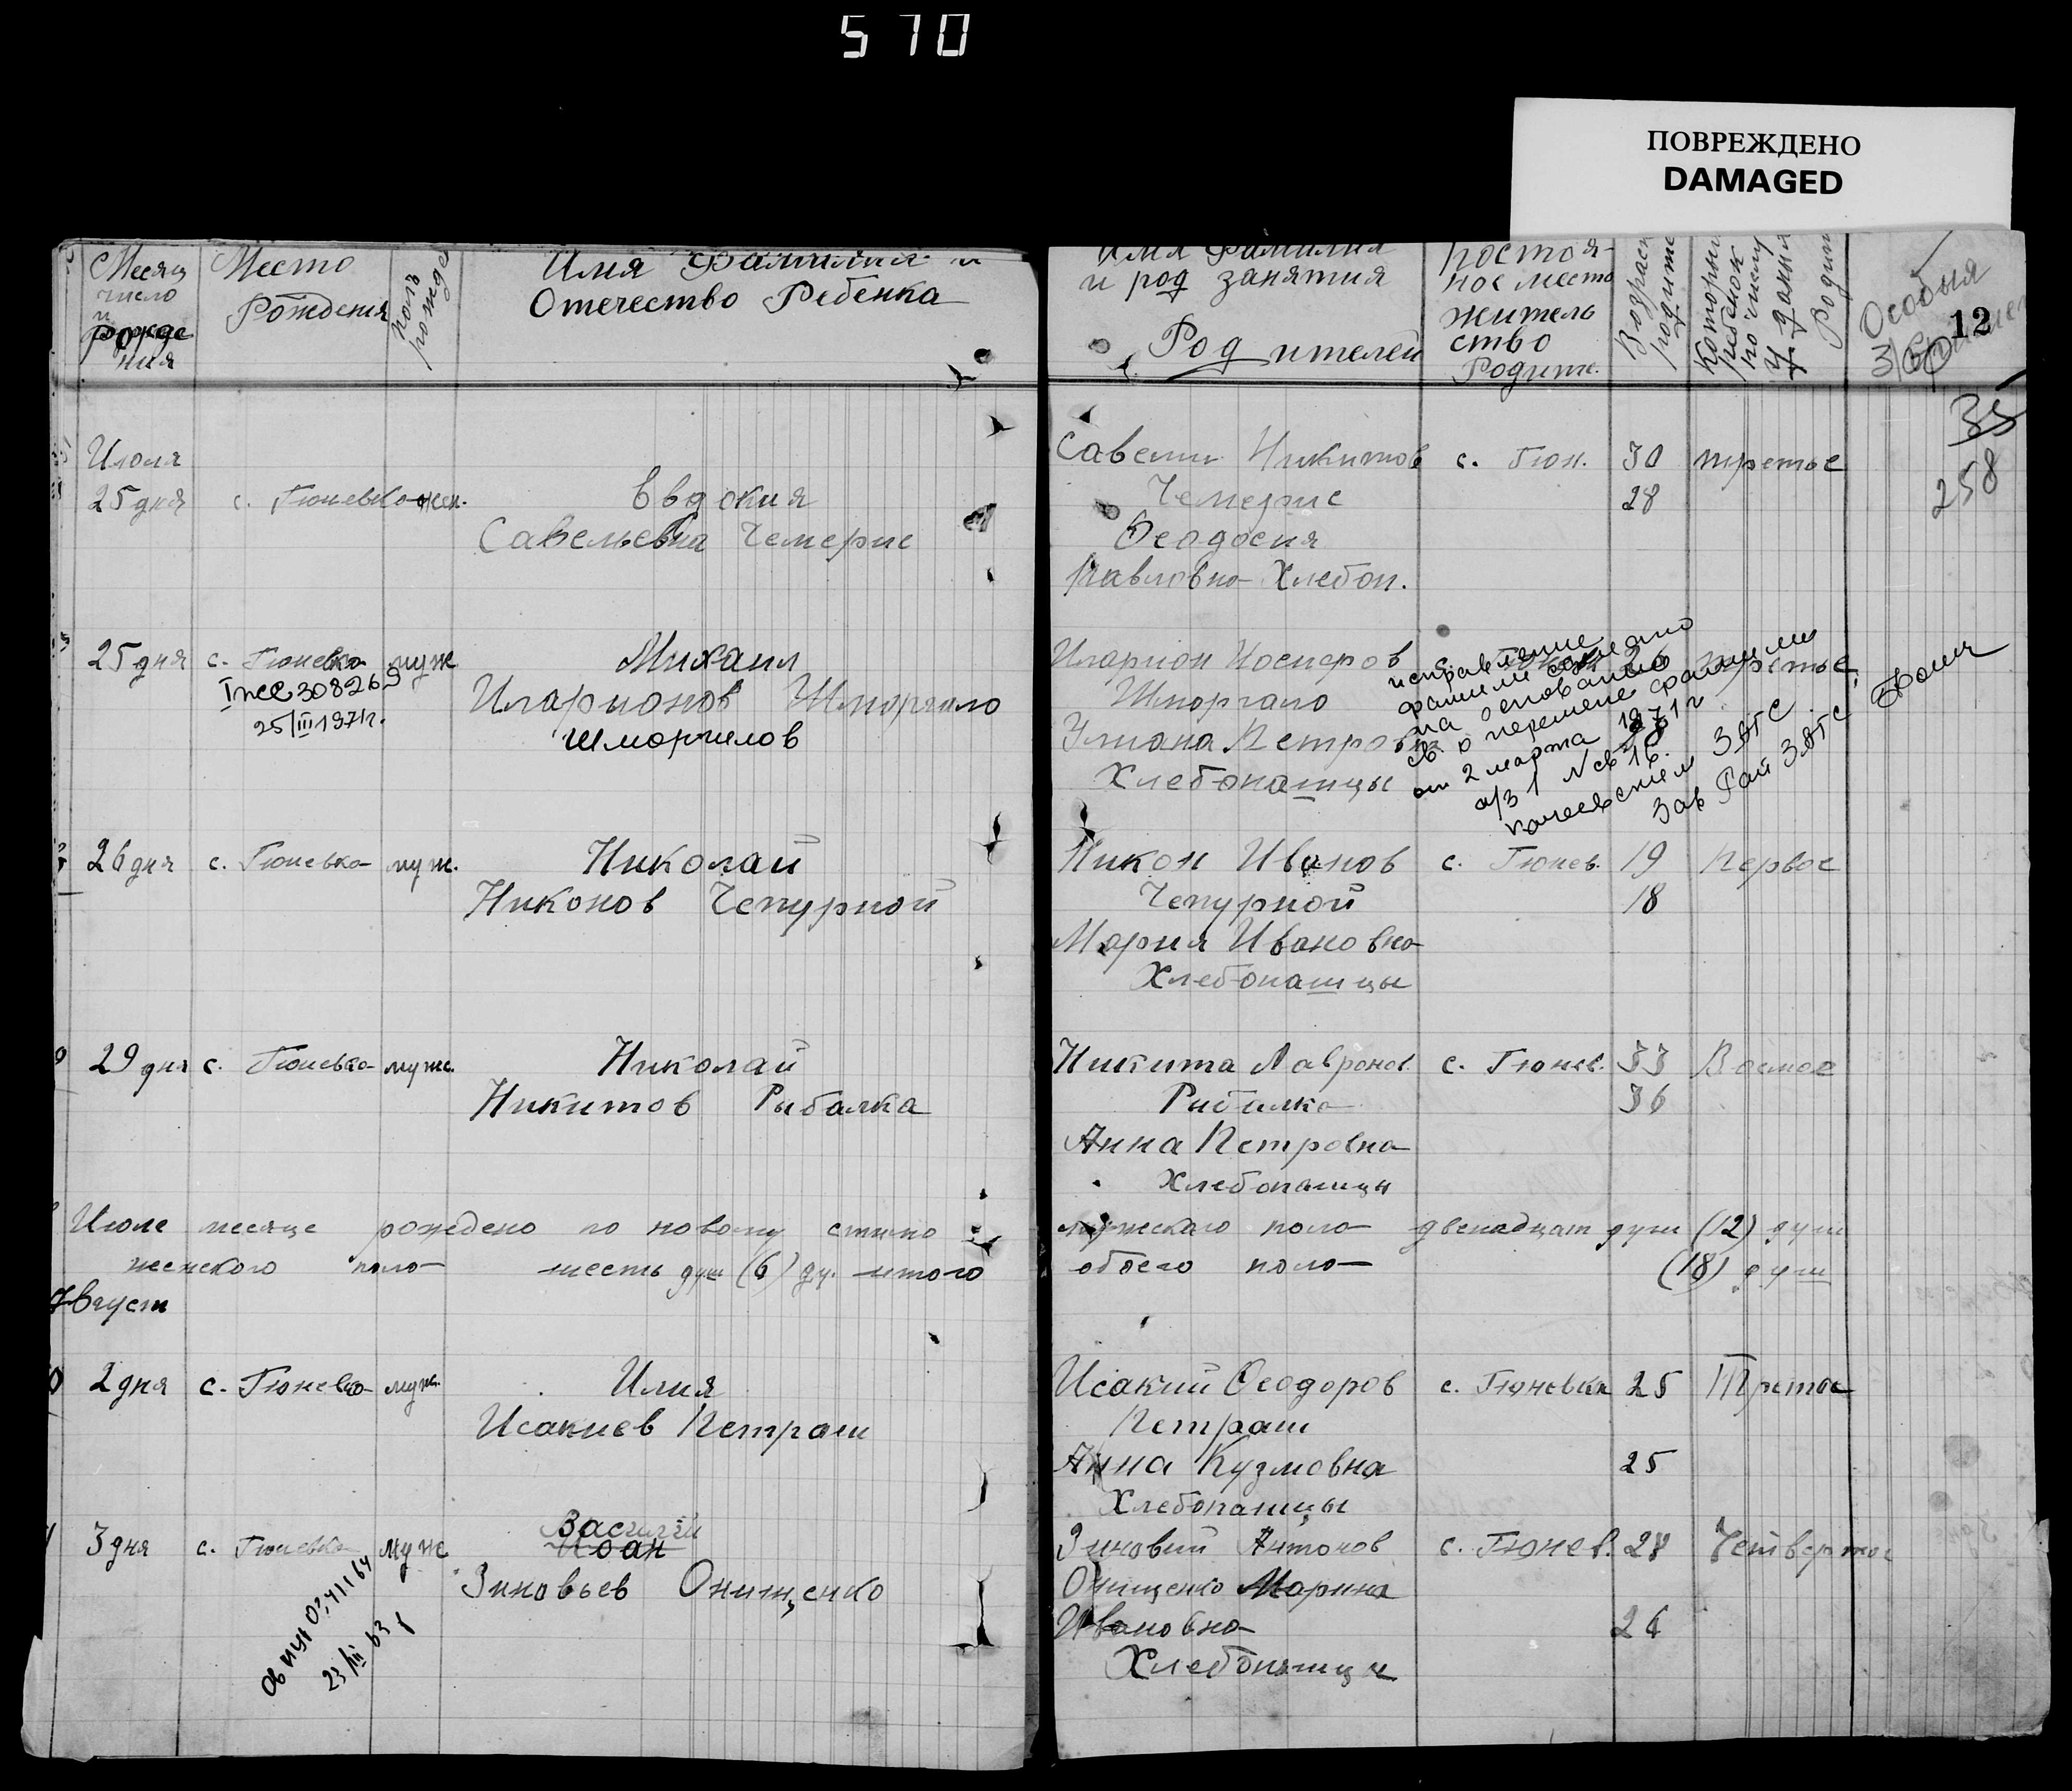 570
ПОВРЕЖДЕНО
DAMAGED
Месяц число и рожде ния
Место Рождения
полъ рожде
Имя Фамилия и
Отечество Ребенка
Имя Фамилия
и род занятия
Родителей
постоя-
ное место
житель
ство
Родите.
Возраст родите
Которыи ребенок по числу у данни Родит
Особыя
12
35
258
Июля
25 дня с. Гюневка жен.
Евдокия
Савельевна Чемерис
Савели Никитов с. Гюн. 30 третье
Чемерис 28
Феодосия
Павловна Хлебоп.
25 дня с. Гюневка муж
I псе 308269
25/III 1971г.
Михаил
Иларионов Шморгало
Шморгилов
Иларион Носперов 26 третье
Шморгало
Улиана Петровна
Хлебопашцы
исправление
фамилии сделано
на основании
св о перемене фамилии
от 2 марта 1971 г
а/з 1 Nсв 16.
ЗАГС
Зав Рай ЗАГС
26 дня с. Гюневка муж.
Николай
Никонов Чепурной
Никон Иванов с. Гюнев. 19 Первое
Чепурной 18
Мария Ивановна
Хлебопашцы
29 дня с. Гюневка муже.
Николай
Никитов Рыбалка
Никита Лавронов. с. Гюнев. 33 Восмое
Рибалка 36
Анна Петровна
Хлебопашци
Июле месяце рождено по новому стилю мужескаго пола двенадцат душ (12) душ
женского пола шесть душ (6) ду. итого обоего пола (18) душ
Август
2 дня с. Гюневка муж.
Илия
Исакиев Петраш
Исакий Феодоров с. Гюневка 25 Третое
Петраш
Анна Кузмовна 25
Хлебопашцы
3 дня с. Гюневка муж
Василий
Иоан
Зиновьев Онищенко
23/III 63
Зиновий Антонов с. Гюнев. 28 Четвертое
Онищенко Марина
Ивановна 26
Хлебопашци